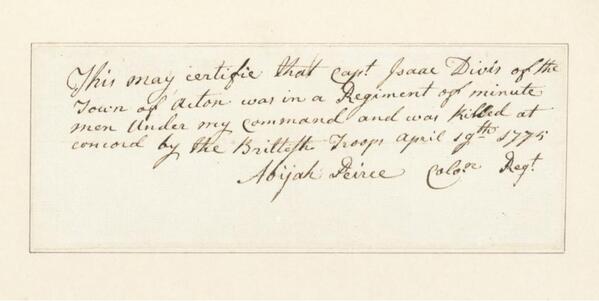 This may certifie that Capt. Isaac Divis of the
Town of Acton was in a Regiment of minute
men Under my command and was Killed at
concord by the Brittesh Troops April 19th 1775
Abijah Peirce Colo.ne Regt.